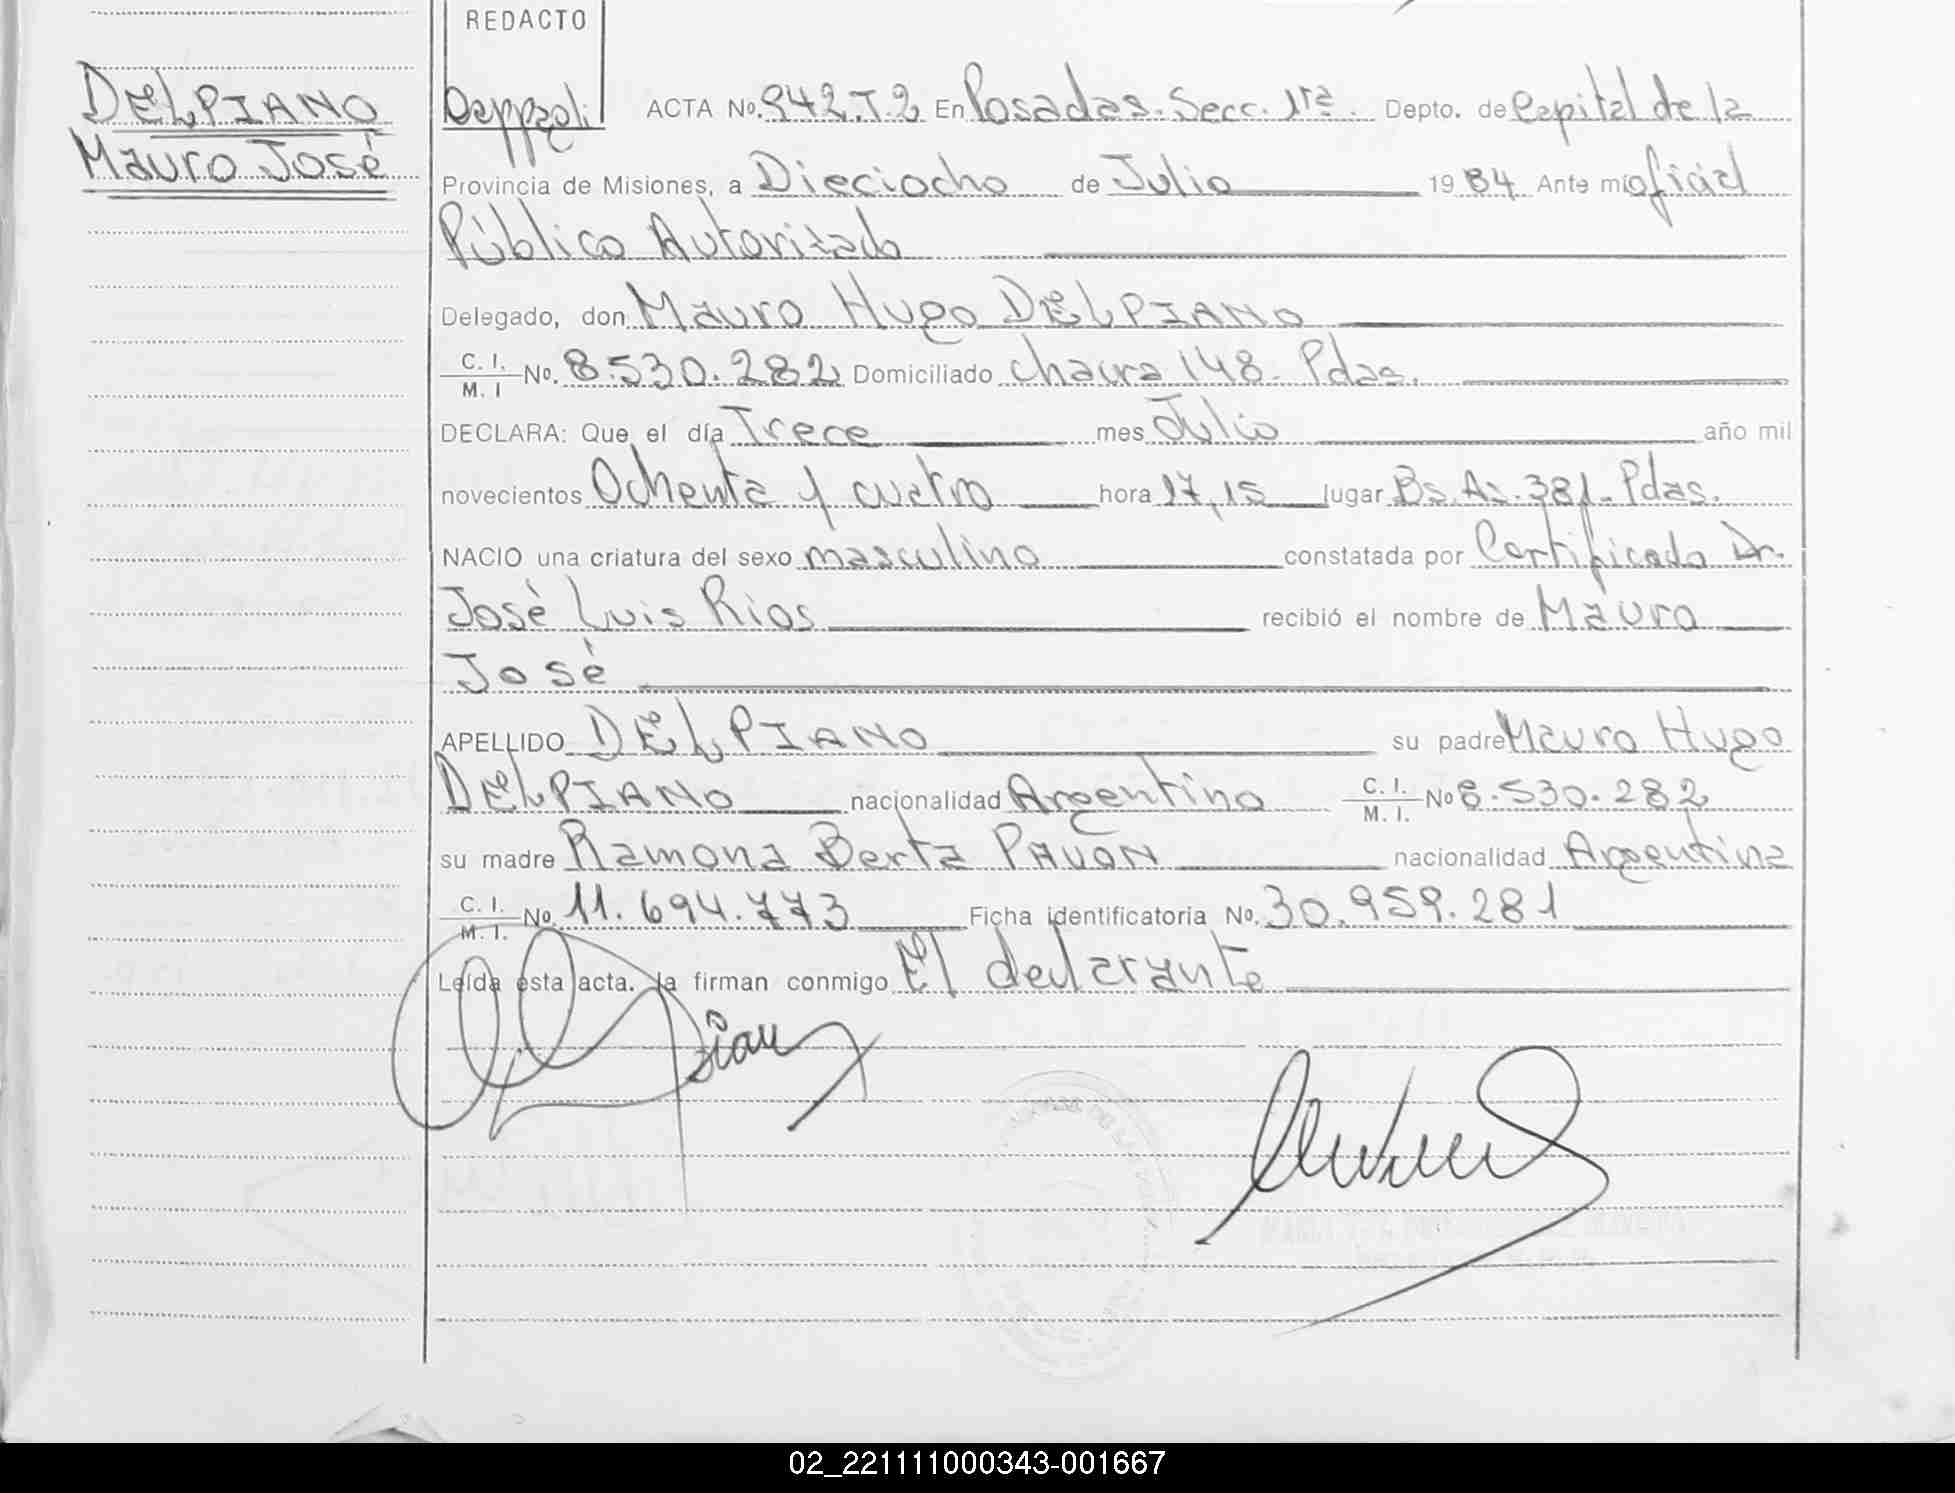 REDACTO
DELPIANO
Mauro José
ACTA No. 942.T.2 En Posadas. Secc. 1ra. Depto. de Capital de la
Provincia de Misiones, a Dieciocho de Julio 1984 Ante mi oficial
Público Autorizado
Delegado, don Mauro Hugo DELPIANO
C. I. / M. I No. 8.530.282 Domiciliado chacra 148. Pdas.
DECLARA: Que el día Trece mes Julio año mil
novecientos Ochenta y cuatro hora 17,15 lugar Bs. As. 381. Pdas.
NACIO una criatura del sexo masculino constatada por Certificado Dr.
José Luis Rios recibió el nombre de Mauro
José
APELLIDO DELPIANO su padre Mauro Hugo
DELPIANO nacionalidad Argentino C. I. / M. I. No 8.530.282
su madre Ramona Berta PAVON nacionalidad Argentina
C. I. / M. I. No. 11.694.773 Ficha identificatoria No. 30.959.281
Leída esta acta. la firman conmigo El declarante
02_221111000343-001667